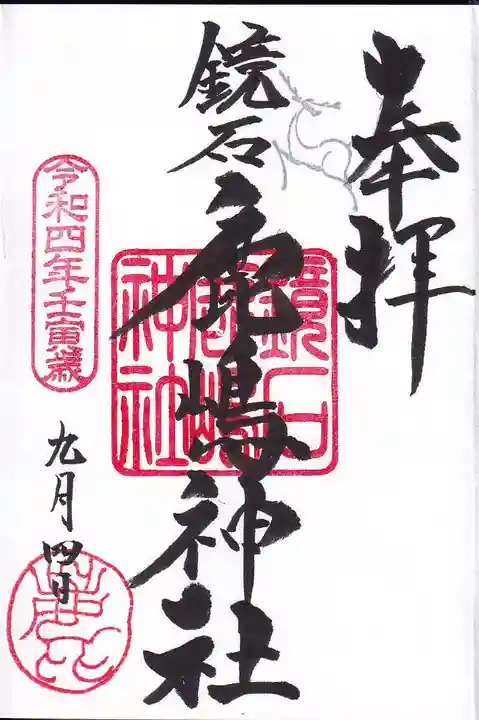 奉拝
鏡石
鹿嶋神社
鏡石
鹿嶋
神社
令和四年壬寅歳
九月四日